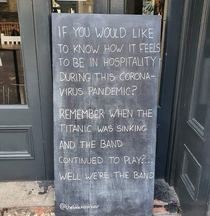 IF YOU WOULD LIKE
TO KNOW HOW IT FEELS
TO BE IN HOSPITALITY
DURING THIS CORONA-
VIRUS PANDEMIC?
REMEMBER WHEN THE
TITANIC WAS SINKING
AND THE BAND
CONTINUED TO PLAY?..
WELL WE'RE THE BAND